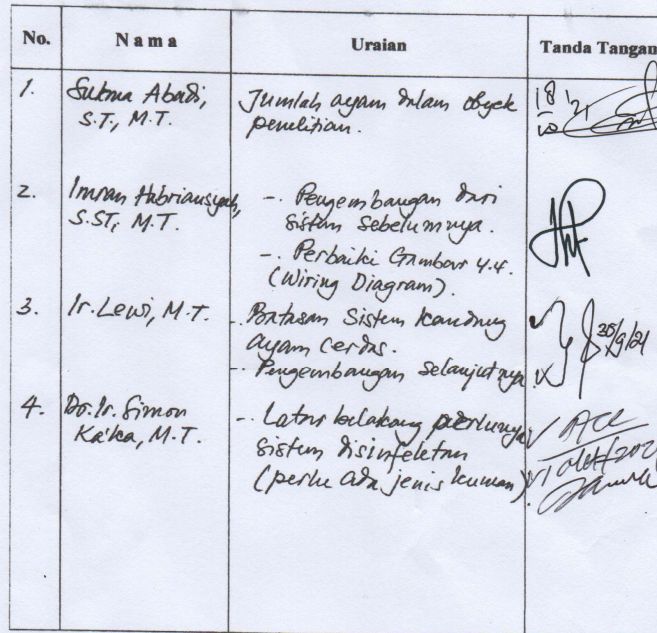 No. Nama Uraian Tanda Tangan
1. Sukma Abadi, Jumlah ayam dalam obyek 18
S.T., M.T. penelitian. 10 '21
2. Imran Habriansyah, -. Pengembangan dari
S.ST, M.T. sistem sebelumnya.
-. Perbaiki Gambar 4.4.
(Wiring Diagram).
3. Ir. Lewi, M.T. -. Batasan Sistem kandang
ayam cerdas.
-. Pengembangan selanjutnya
4. Dr. Ir. Simon -. Latar belakang perlunya ACC
Ka'ka, M.T. sistem disinfektan
(perlu ada jenis kuman)